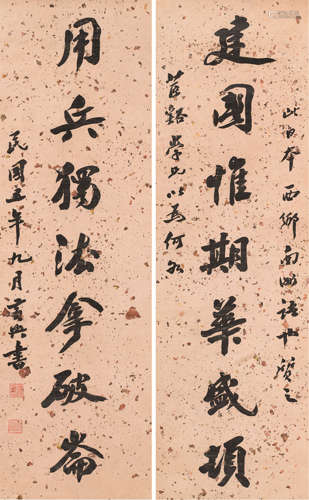 此日本西鄉南洲
質之
建國惟期華盛頓
苕谿學兄以為何如
用兵獨法拿破崙
民國五年九月黃興書